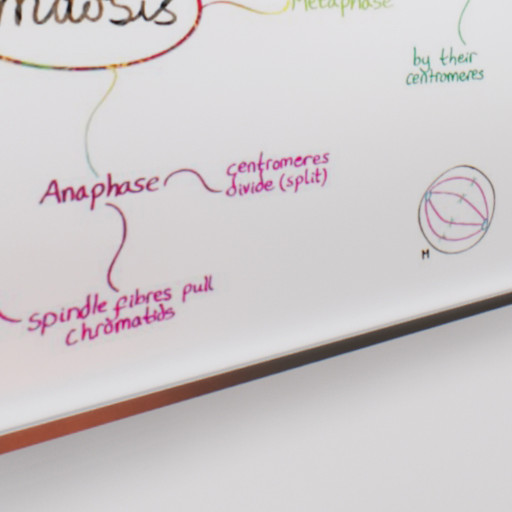 Metaphase
by their
centromeres
Anaphase
centromeres
divide (split)
M
spindle fibres pull
chromatids